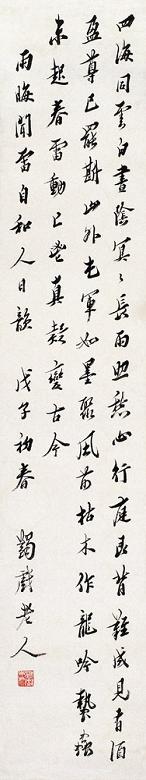 四海同雲白晝陰冥〻長雨照愁心行庭艮背難成見有酒
盈尊已罷斟山外屯軍如墨聚風前枯木作龍吟蟄蟲
未起春雷動已變古今
雨晦聞雷自和人日韻 戊子初春 蠲戲老人